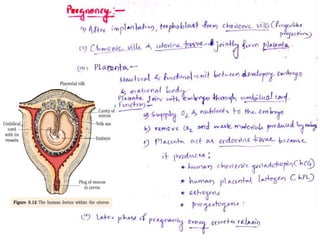 Pregnancy:-
(i) After implantation, trophoblast form chorionic villi (fingerlike
projections)
(ii) Chorionic villi & uterine tissue jointly form placenta
(iii) Placenta -
structural & functional unit between developing embryo
& maternal body
Placenta Join with embryo through umbilical cord.
Function -
a) Supply O2 & nutrients to the embryo
b) remove CO2 and waste materials produced by embryo
c) Placenta act as endocrine tissue because
it produces;
* human chorionic gonadotropin (hCG)
* human placental lactogen (hPL)
* estrogens
* progestogens:
(iv) Later phase of pregnancy ovary secretes relaxin
Placental villi
Cavity of
uterus
Yolk sac
Embryo
Umbilical
cord with
its vessels
Plug of mucus
in cervix
Figure 3.12 The human foetus within the uterus